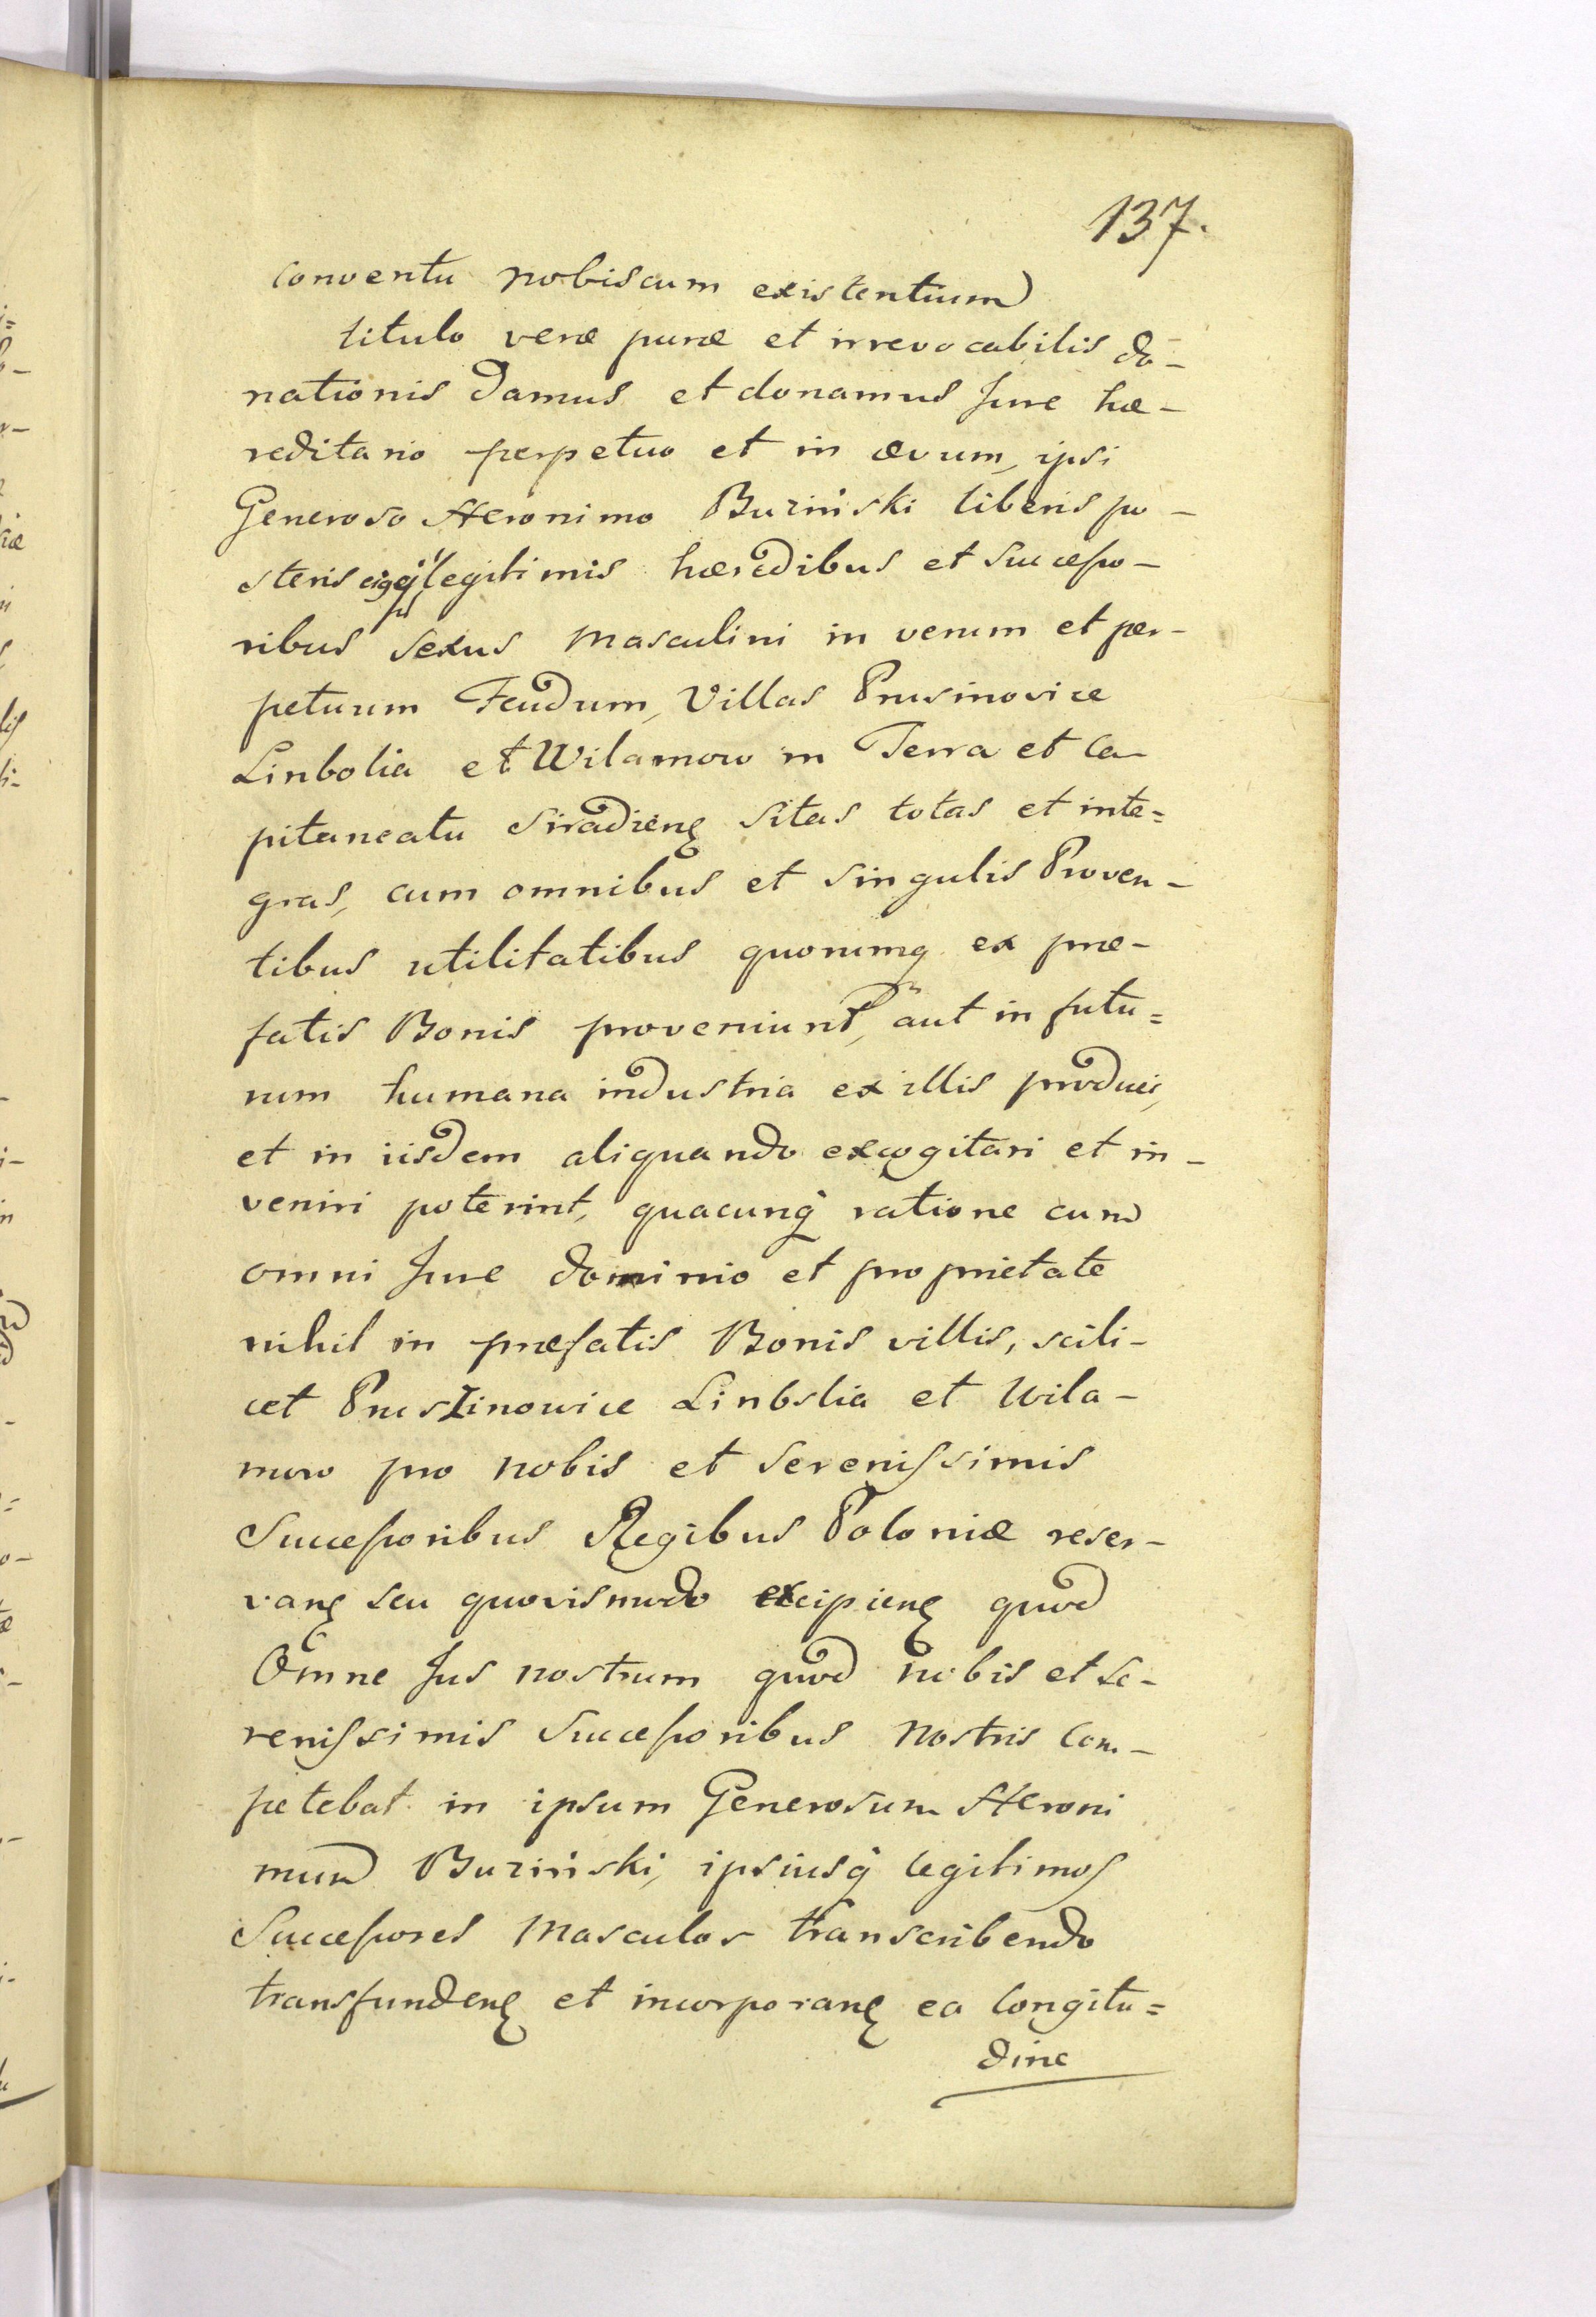 137.
conventu nobiscum existentium
titulo veræ puræ et irrevocabilis do-
nationis damus et donamus Jure hæ-
reditario perpetuo et in ævum, ipsi
Generoso Heronimo Buziński liberis po-
steris legitimis hæredibus et Successo-
ribus sexus masculini in verum et per-
petuum Feudum, Villas Prusinovice
Linbolia et Wilamow in Terra et Ca-
pitaneatu Siradien̄ sitas totas et inte=
gras, cum omnibus et singulis Proven-
tibus utilitatibus quorumq ex præ-
fatis Bonis proveniunt, aut in futu=
rum humana industria ex illis produci,
et in iisdem aliquando excogitari et in-
veniri poterint, quacunq ratione cum
omni Jure dominio et proprietate
nihil in præfatis Bonis villis, scili-
cet Pruszinowice Linbslia et Wila-
mow pro nobis et Serenissimis
Successoribus Regibus Poloniæ reser-
van̄ seu quovismodo excipien̄ quod
Omne Jus nostrum quod nobis et Se-
renissimis Successoribus Nostris Com-
petebat in ipsum Generosum Heroni
mum Buziński, ipsiusq legitimos
Successores Masculos transcribendo
transfunden̄ et incorporan̄ ea longitu=
dine